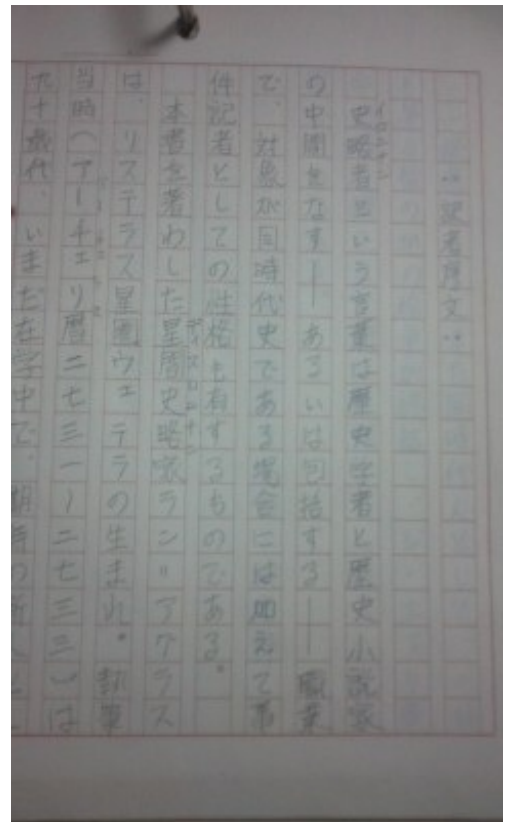 ‥訳者序文‥
史略者という言葉は歴史学者と歴史小説家
の中間をなす——あるいは包括する——職業
で、対象が同時代史である場合には加えて事
件記者としての性格も有するものである。
本書を著わした星暦史略家ラン＝アグラス
は、リステラス星圏ウェテラの生まれ。執筆
当時（アーチェリ暦二七三一〜二七三三）は
九十歳代、いまだ在学中で、